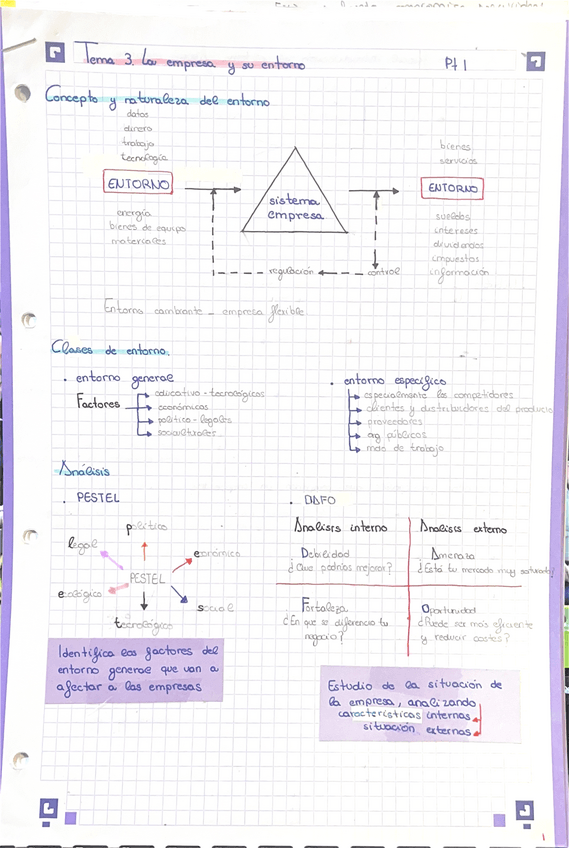 Tema 3. La empresa y su entorno
Pt 1
Concepto y naturaleza del entorno
datos
dinero
trabajo
tecnología
ENTORNO
energía
bienes de equipo
materiales
sistema
empresa
bienes
servicios
ENTORNO
sueldos
intereses
dividendos
impuestos
información
regulación
control
Entorno cambiante _ empresa flexible
Clases de entorno.
. entorno general
Factores
educativo-tecnológicos
económicos
político-legales
socialturales
. entorno específico
especialmente los competidores
clientes y distribuidores del producto
proveedores
org públicos
mdo de trabajo
Análisis
. PESTEL
político
legal
económico
PESTEL
ecológico
social
tecnológico
Identifica los factores del
entorno general que van a
afectar a las empresas
. DAFO
Análisis interno
Análisis externo
Debilidad
¿Que podrías mejorar?
Amenaza
¿Está tu mercado muy saturado?
Fortaleza
¿En que se diferencia tu
negocio?
Oportunidad
¿Puede ser más eficiente
y reducir costes?
Estudio de la situación de
la empresa, analizando
características internas
situación externas